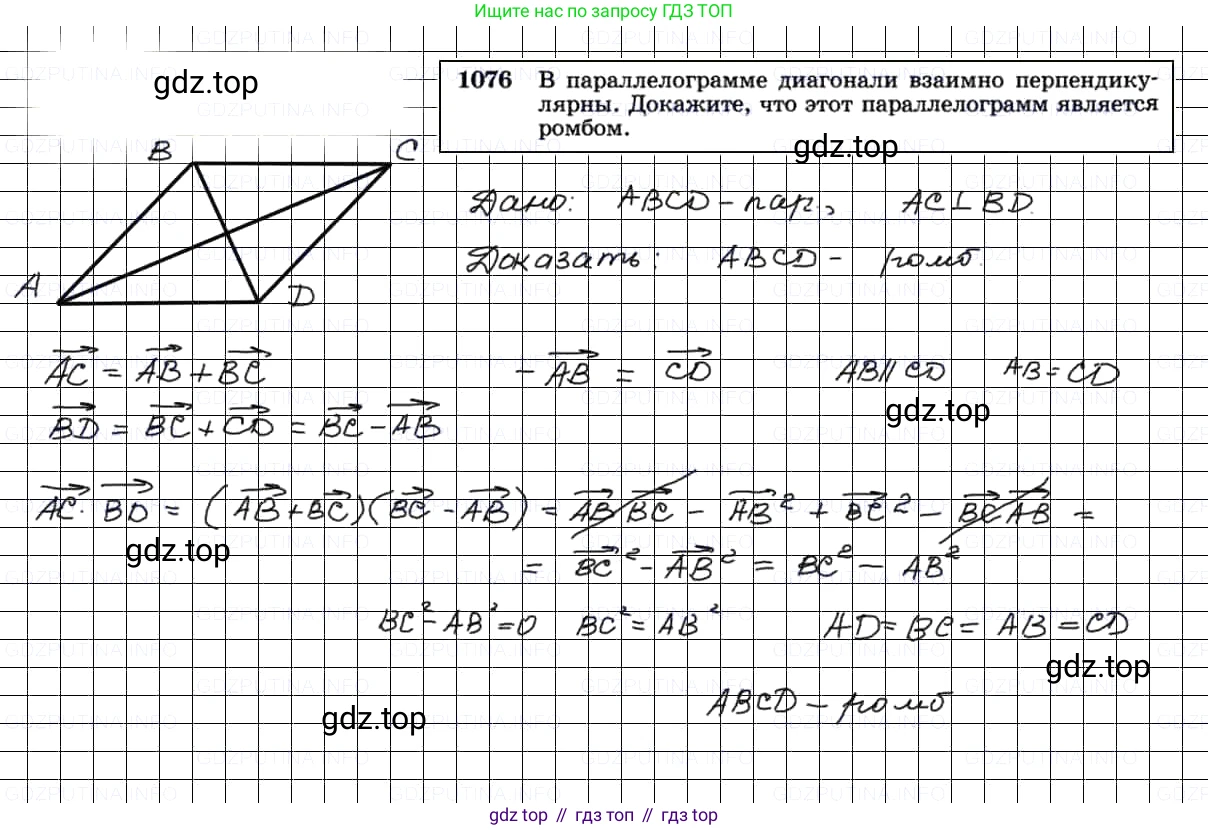 Ищите нас по запросу ГДЗ ТОП
gdz.top
1076 В параллелограмме диагонали взаимно перпендику-
лярны. Докажите, что этот параллелограмм является
ромбом.
gdz.top
B C
A D
Дано: ABCD – пар., AC ⊥ BD.
Доказать: ABCD – ромб.
AC = AB + BC
– AB = CD
AB // CD AB = CD
gdz.top
BD = BC + CD = BC – AB
AC · BD = (AB + BC)(BC – AB) = AB BC – AB² + BC² – BC AB =
gdz.top
= BC² – AB² = BC² – AB²
BC² – AB² = 0 BC² = AB² AD = BC = AB = CD
gdz.top
ABCD – ромб
gdz.top
gdz top // гдз топ // гдз top
GDZPUTINA.INFO